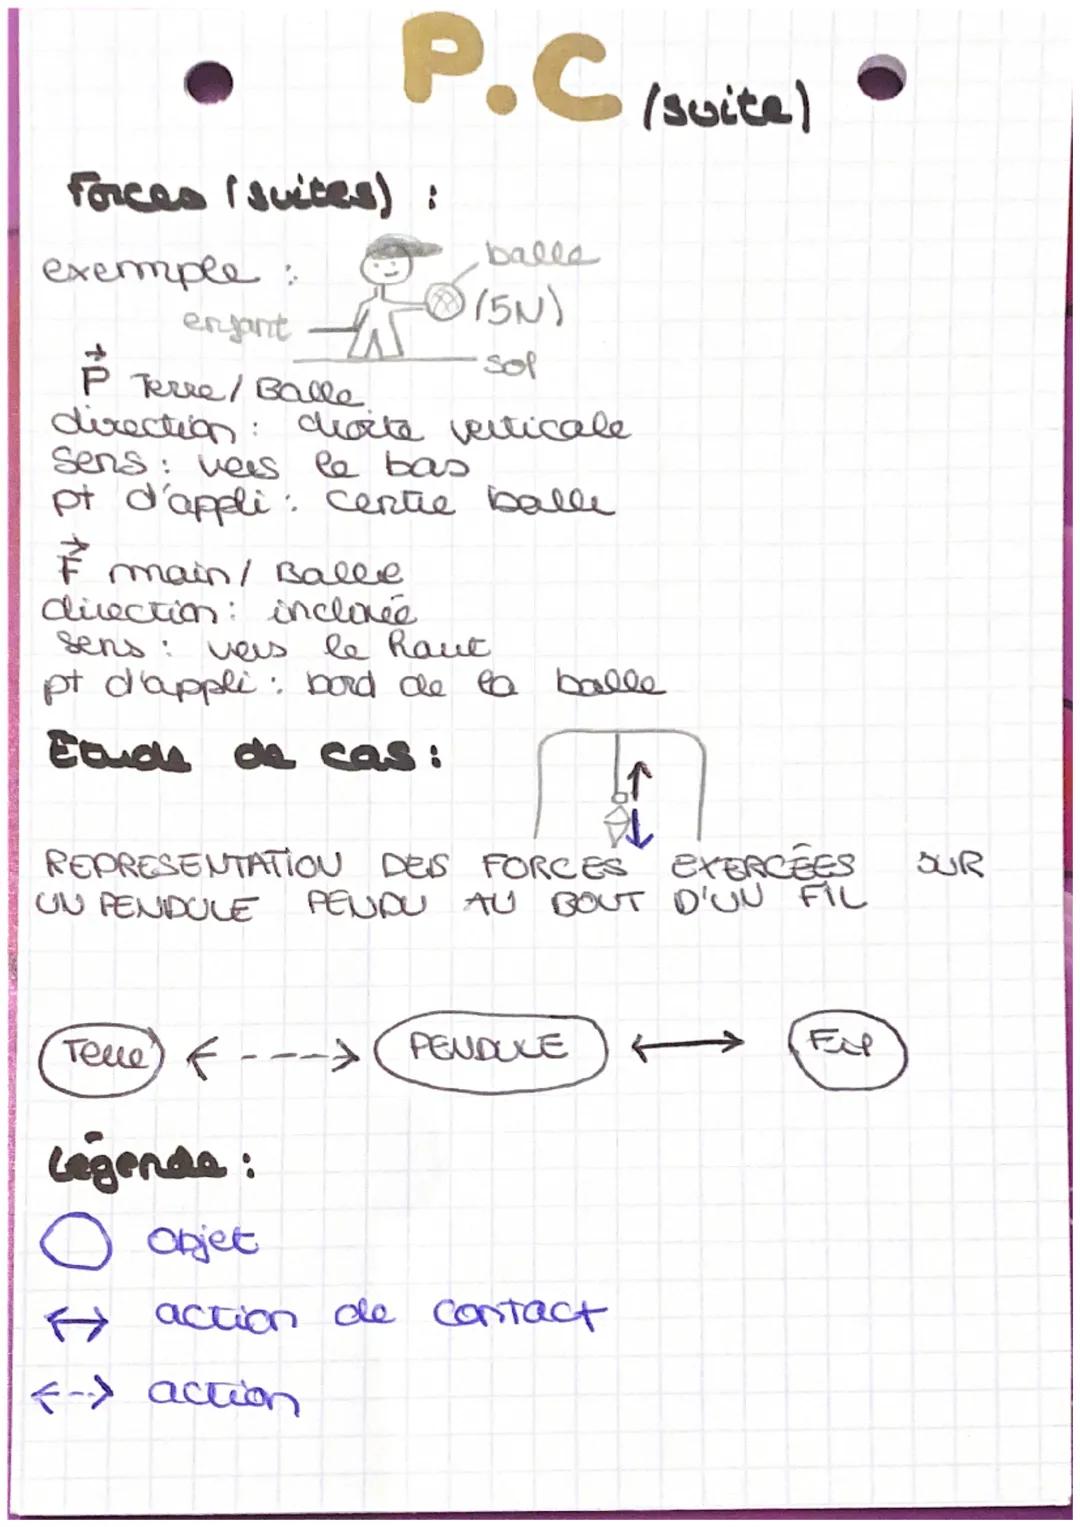 P.C (suite)
Forces (suites) :
exemple :
balle
(5N)
enfant
sol
P Terre / Balle
direction : droite verticale
sens : vers le bas
pt d'appli : centre balle
F main / Balle
direction : inclinée
sens : vers le haut
pt d'appli : bord de la balle
Etude de cas :
REPRESENTATION DES FORCES EXERCÉES SUR
UN PENDULE PENDU AU BOUT D'UN FIL
Terre
PENDULE
Fil
Légende :
Objet
action de contact
action